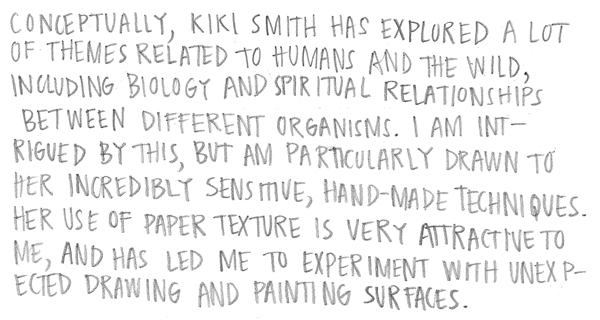 CONCEPTUALLY, KIKI SMITH HAS EXPLORED A LOT
OF THEMES RELATED TO HUMANS AND THE WILD,
INCLUDING BIOLOGY AND SPIRITUAL RELATIONSHIPS
BETWEEN DIFFERENT ORGANISMS. I AM INT-
RIGUED BY THIS, BUT AM PARTICULARLY DRAWN TO
HER INCREDIBLY SENSITIVE, HAND-MADE TECHNIQUES.
HER USE OF PAPER TEXTURE IS VERY ATTRACTIVE TO
ME, AND HAS LED ME TO EXPERIMENT WITH UNEXP-
ECTED DRAWING AND PAINTING SURFACES.